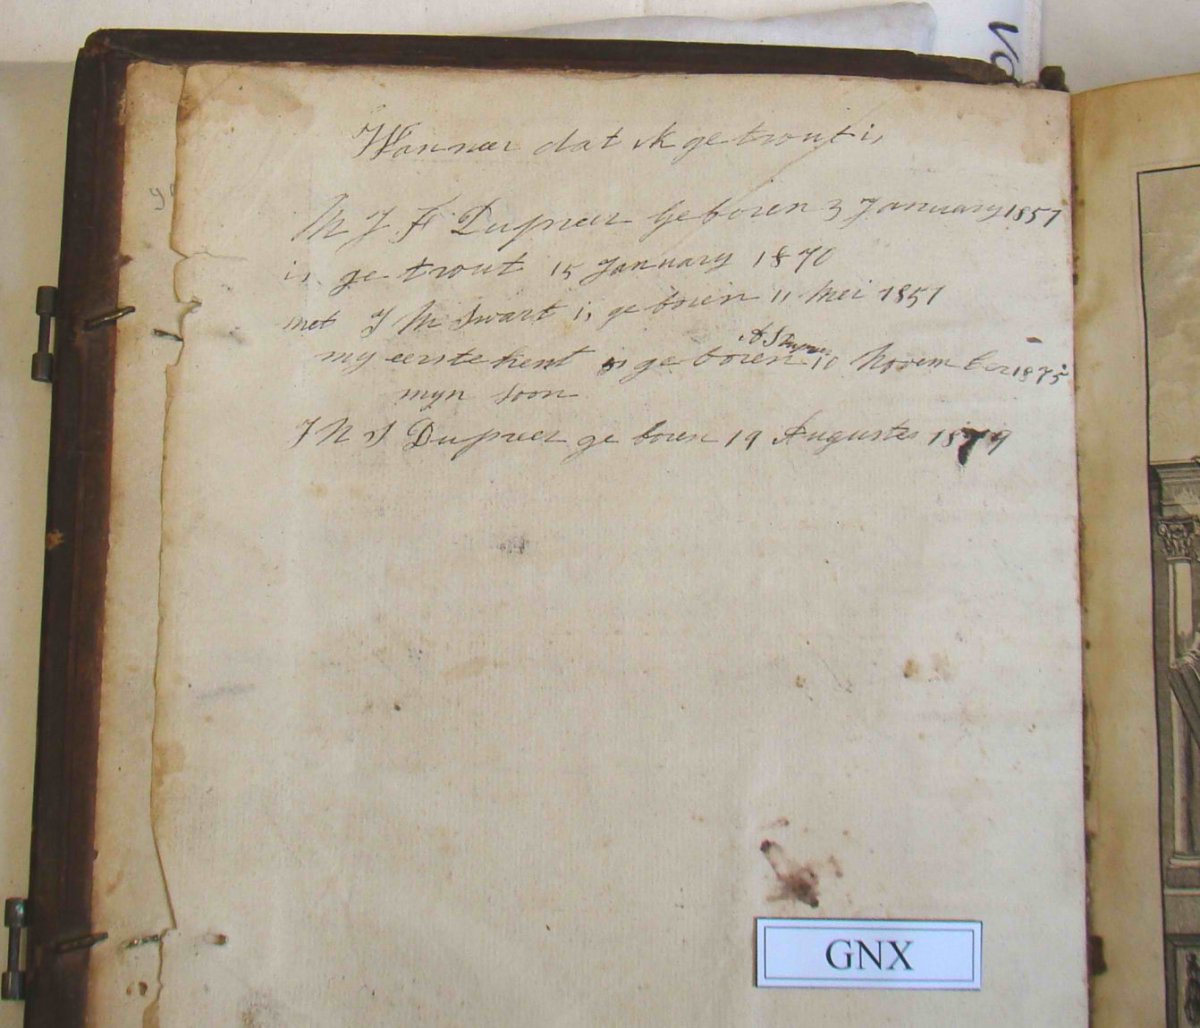 Wanneer dat ik ge trout is
M J F Dupreez Geboren 3 January 1851
is ge trout 15 January 1870
met J M Swart is ge boren 11 Mei 1851
my eerste kent is ge boren 10 November 1875
myn soon
J N J Dupreez ge boren 19 Augustes 1879
GNX